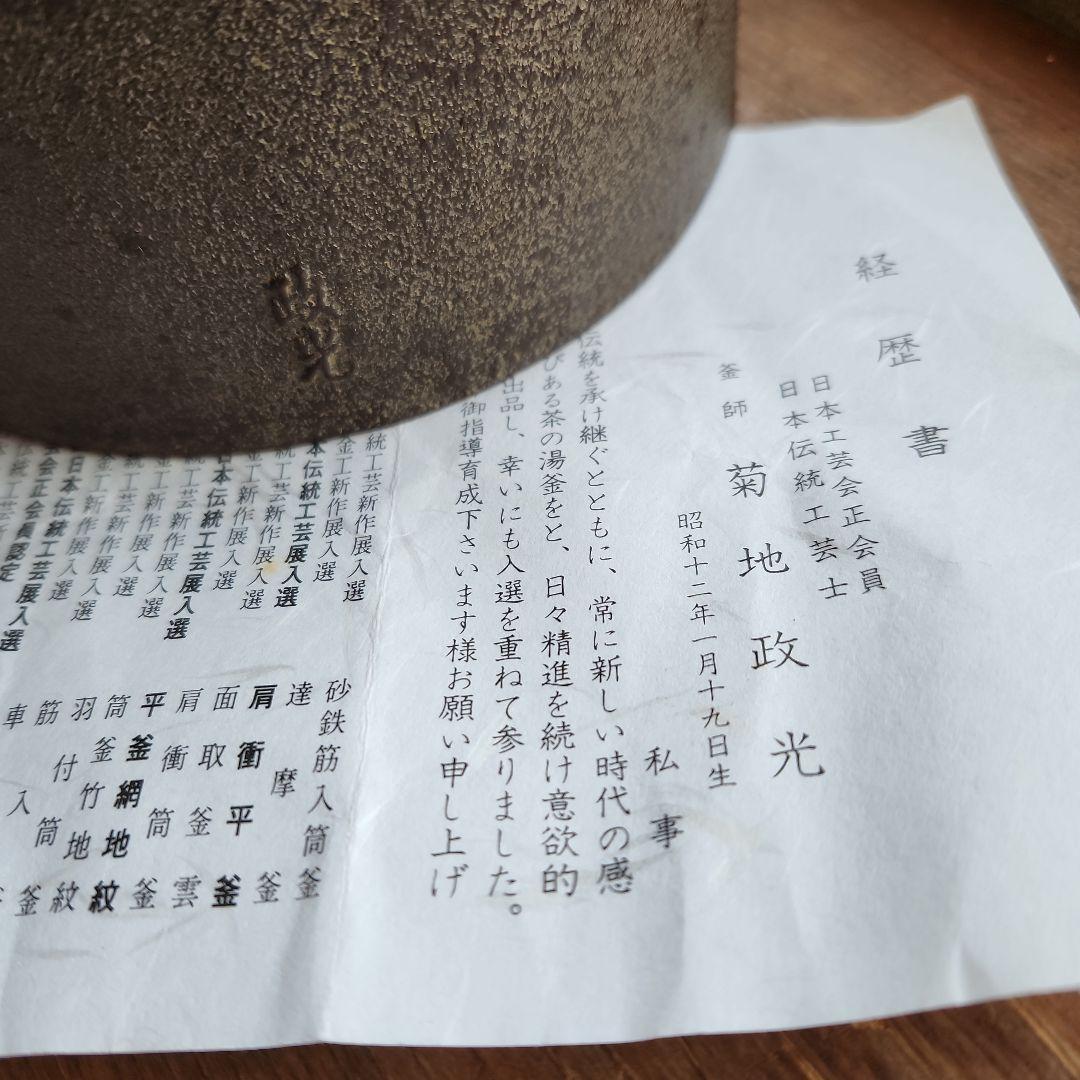 経歴書
日本工芸会正会員
日本伝統工芸士
釜師 菊地政光
昭和十二年一月十九日生
私事
伝統を承け継ぐとともに、常に新しい時代の感
びある茶の湯釜をと、日々精進を続け意欲的
出品し、幸いにも入選を重ねて参りました。
御指導育成下さいます様お願い申し上げ
統工芸新作展入選
金工新作展入選
本伝統工芸展入選
統工芸新作展入選
金工新作展入選
日本伝統工芸展入選
芸新作展入選
工新作展入選
工芸新作展入選
工新作展入選
日本伝統工芸展入選
会正会員認定
砂鉄筋入筒釜
達摩釜
肩衝平釜
面取釜雲
肩衝筒釜
平釜網地紋
筒釜竹地紋
羽付
筋筒釜
車入
政光